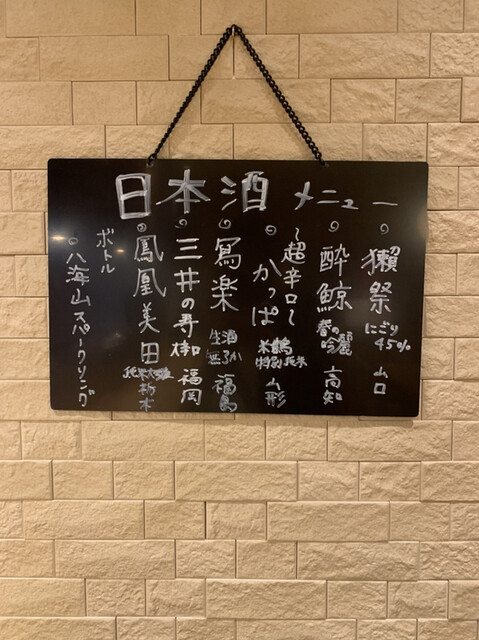 日本酒メニュー
獺祭 にごり 45% 山口
酔鯨 春の吟麗 高知
〜超辛口〜
かっぱ 米鶴 特別純米 山形
寫楽 生酒 福島
三井の寿 福岡
鳳凰美田 栃木
ボトル
八海山スパークリング